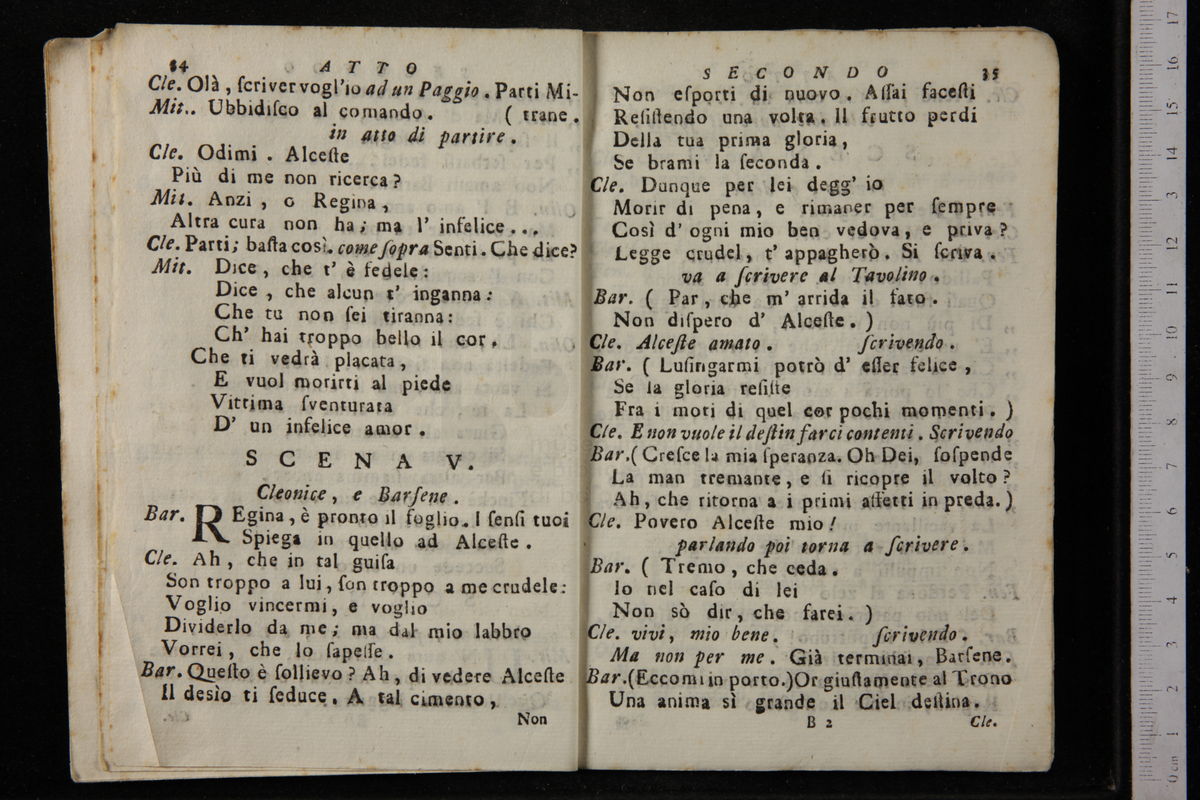 84
ATTO
Cle. Olà, ſcriver vogl'io ad un Paggio. Parti Mi-
Mit.. Ubbidiſco al comando. ( trane.
in atto di partire.
Cle. Odimi. Alceſte
Più di me non ricerca?
Mit. Anzi, o Regina,
Altra cura non ha; ma l' infelice...
Cle. Parti; baſta così. come ſopra Senti. Che dice?
Mit. Dice, che t' è fedele:
Dice, che alcun t' inganna:
Che tu non ſei tiranna:
Ch' hai troppo bello il cor.
Che ti vedrà placata,
E vuol morirti al piede
Vittima ſventurata
D' un infelice amor.
SCENA V.
Cleonice, e Barſene.
Bar. REgina, è pronto il foglio. I ſenſi tuoi
Spiega in quello ad Alceſte.
Cle. Ah, che in tal guiſa
Son troppo a lui, ſon troppo a me crudele:
Voglio vincermi, e voglio
Dividerlo da me; ma dal mio labbro
Vorrei, che lo ſapeſſe.
Bar. Queſto è ſollievo? Ah, di vedere Alceſte
Il desìo ti ſeduce. A tal cimento,
Non
SECONDO
35
Non eſporti di nuovo. Aſſai faceſti
Reſiſtendo una volta. Il frutto perdi
Della tua prima gloria,
Se brami la ſeconda.
Cle. Dunque per lei degg' io
Morir di pena, e rimaner per ſempre
Così d' ogni mio ben vedova, e priva?
Legge crudel, t' appagherò. Si ſcriva.
va a ſcrivere al Tavolino.
Bar. ( Par, che m' arrida il fato.
Non diſpero d' Alceſte. )
Cle. Alceſte amato. ſcrivendo.
Bar. ( Luſingarmi potrò d' eſſer felice,
Se la gloria reſiſte
Fra i moti di quel cor pochi momenti. )
Cle. E non vuole il deſtin farci contenti. Scrivendo
Bar. ( Creſce la mia ſperanza. Oh Dei, ſoſpende
La man tremante, e ſi ricopre il volto?
Ah, che ritorna a i primi affetti in preda. )
Cle. Povero Alceſte mio!
parlando poi torna a ſcrivere.
Bar. ( Tremo, che ceda.
Io nel caſo di lei
Non sò dir, che farei. )
Cle. vivi, mio bene. ſcrivendo.
Ma non per me. Già terminai, Barſene.
Bar. (Eccomi in porto.) Or giuſtamente al Trono
Una anima sì grande il Ciel deſtina.
B 2
Cle.
0 cm 1 2 3 4 5 6 7 8 9 10 11 12 13 14 15 16 17